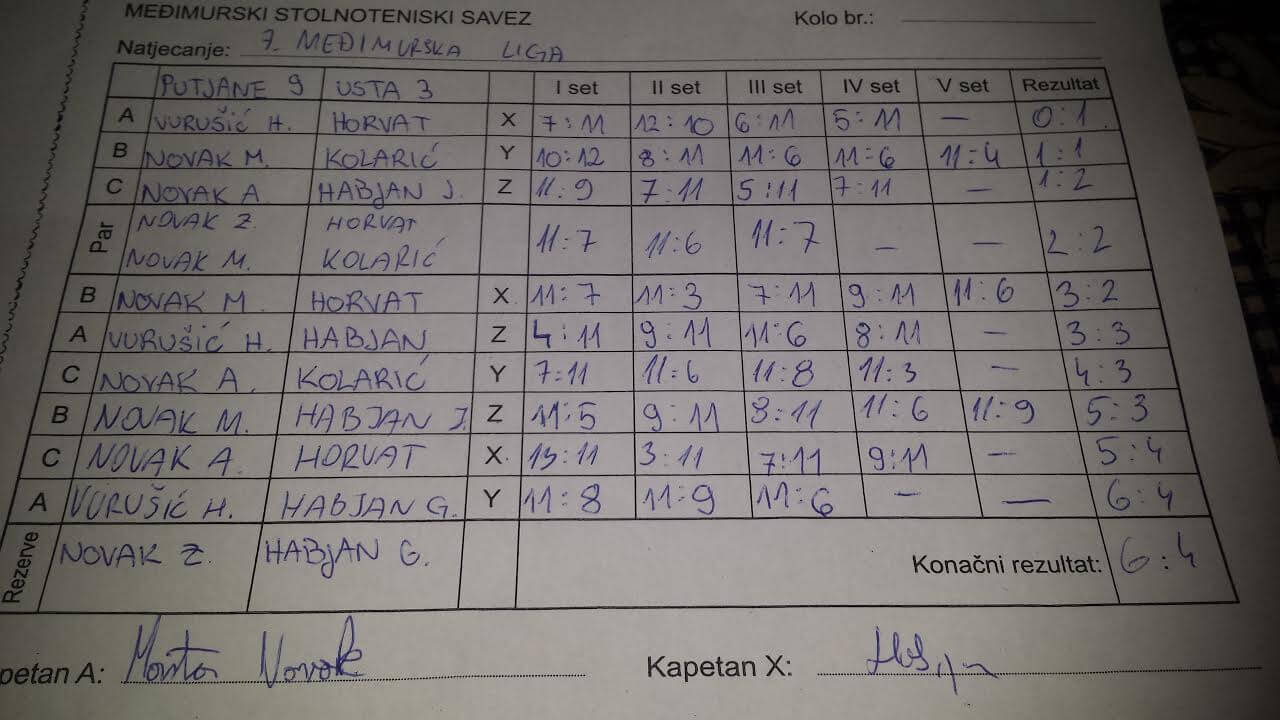 MEĐIMURSKI STOLNOTENISKI SAVEZ Kolo br.:
Natjecanje: 7. MEĐIMURSKA LIGA
PUTJANE 9 USTA 3 I set II set III set IV set V set Rezultat
A VURUŠIĆ H. HORVAT X 7:11 12:10 6:11 5:11 — 0:1
B NOVAK M. KOLARIĆ Y 10:12 8:11 11:6 11:6 11:4 1:1
C NOVAK A. HABJAN J. Z 11:9 7:11 5:11 7:11 — 1:2
Par NOVAK Z. HORVAT
NOVAK M. KOLARIĆ 11:7 11:6 11:7 — — 2:2
B NOVAK M. HORVAT X 11:7 11:3 7:11 9:11 11:6 3:2
A VURUŠIĆ H. HABJAN Z 4:11 9:11 11:6 8:11 — 3:3
C NOVAK A. KOLARIĆ Y 7:11 11:6 11:8 11:3 — 4:3
B NOVAK M. HABJAN J. Z 11:5 9:11 8:11 11:6 11:9 5:3
C NOVAK A. HORVAT X 13:11 3:11 7:11 9:11 — 5:4
A VURUŠIĆ H. HABJAN G. Y 11:8 11:9 11:6 — — 6:4
Rezerve NOVAK Z. HABJAN G. Konačni rezultat: 6:4
petan A: Novak Kapetan X: